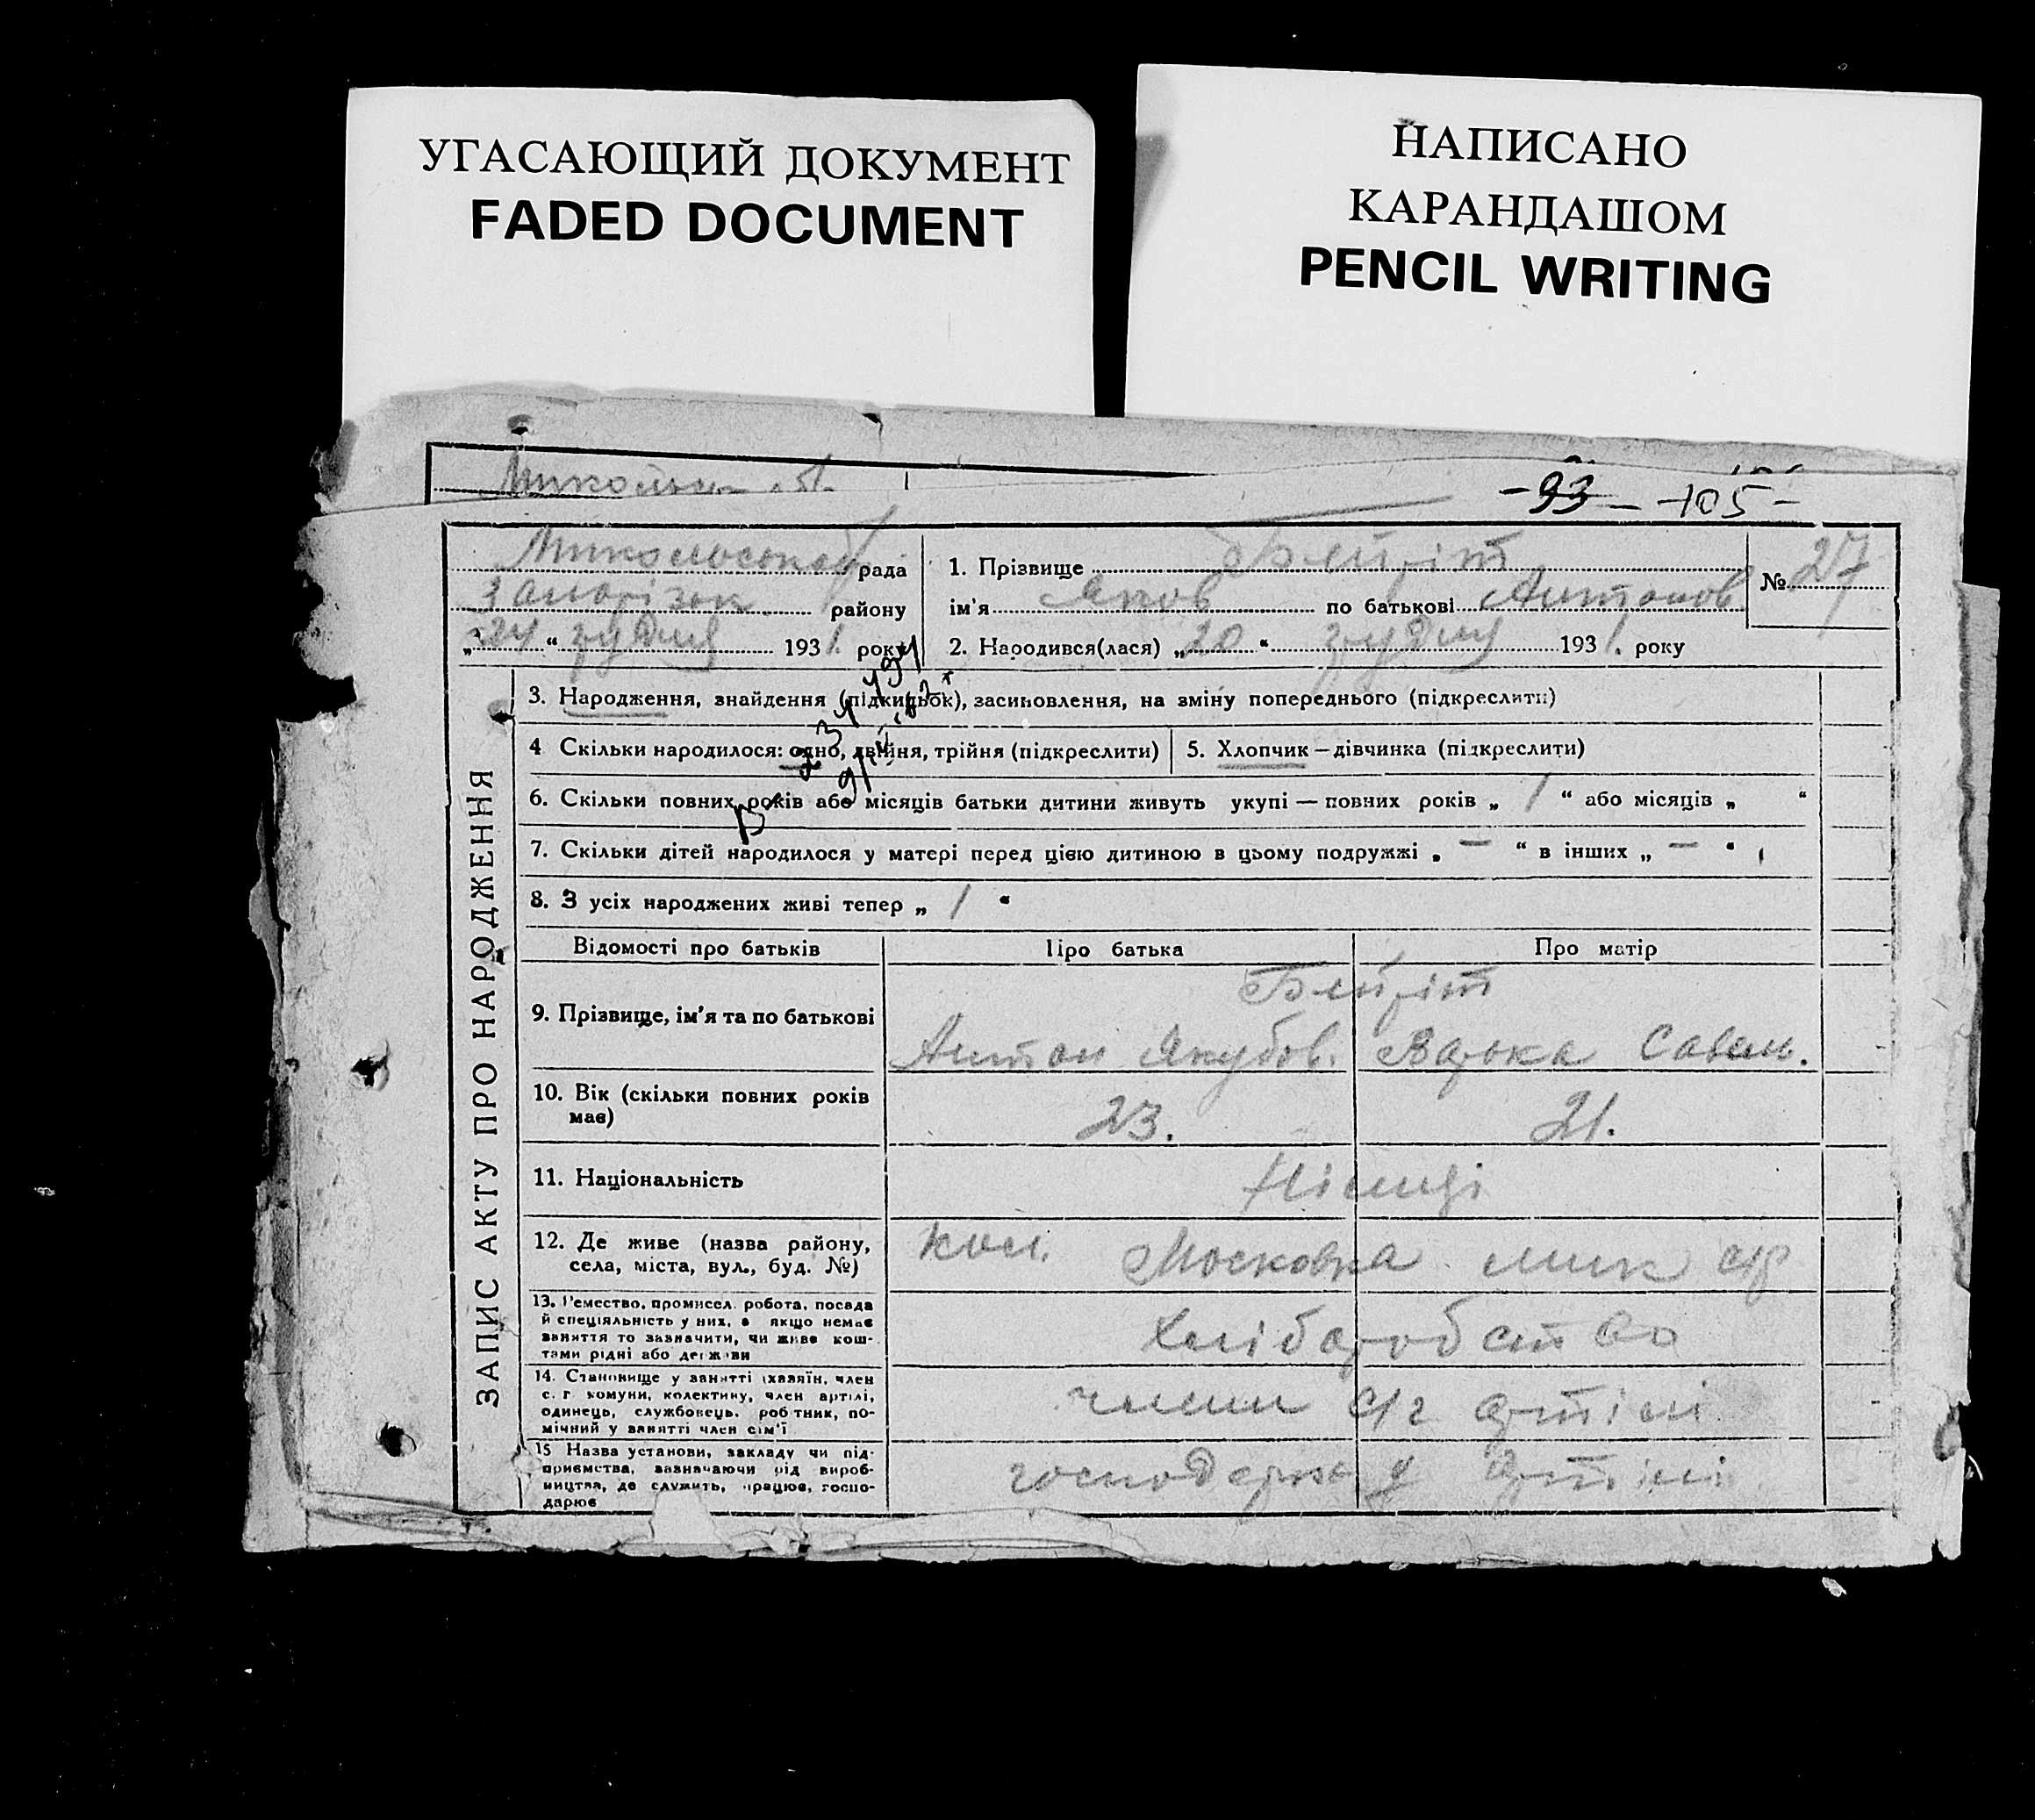 УГАСАЮЩИЙ ДОКУМЕНТ
FADED DOCUMENT
НАПИСАНО
КАРАНДАШОМ
PENCIL WRITING
-93- -105-
рада
Запорізьк. району
„24“ грудня 1931. року
1. Прізвище
ім'я Яков по батькові Антонов
2. Народився(лася) „20“ грудня 1931. року
№ 27
ЗАПИС АКТУ ПРО НАРОДЖЕННЯ
3. Народження, знайдення (підкидьок), засиновлення, на зміну попереднього (підкреслити)
4 Скільки народилося: одно, двійня, трійня (підкреслити)
5. Хлопчик — дівчинка (підкреслити)
6. Скільки повних років або місяців батьки дитини живуть укупі — повних років „ 1 “ або місяців „ “
7. Скільки дітей народилося у матері перед цією дитиною в цьому подружжі „ — “ в інших „ — “
8. З усіх народжених живі тепер „ 1 “
Відомості про батьків
Про батька
Про матір
9. Прізвище, ім'я та по батькові
Антон Якубов.
Варька Савель.
10. Вік (скільки повних років
має)
23.
21.
11. Національність
Німці
12. Де живе (назва району,
села, міста, вул., буд. №)
кол. Московка мик с/р
13. Ремество, промисел, робота, посада
й спеціяльність у них, а якщо немає
заняття то зазначити, чи живе кош-
тами рідні або держави
Хліборобство
14. Становище у занятті (хазяїн, член
с. г комуни, колективу, член артілі,
одинець, службовець, робітник, по-
мічний у занятті член сім'ї
члени с/г артілі
15 Назва установи, закладу чи під-
приємства, зазначаючи рід вироб-
ництва, де служить, працює, госпо-
дарює
господарює у артілі